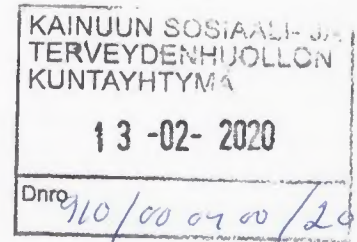 KAINUUN SOSIAALI- JA
TERVEYDENHUOLLON
KUNTAYHTYMÄ
13 -02- 2020
Dnro 910/00 04 00/20